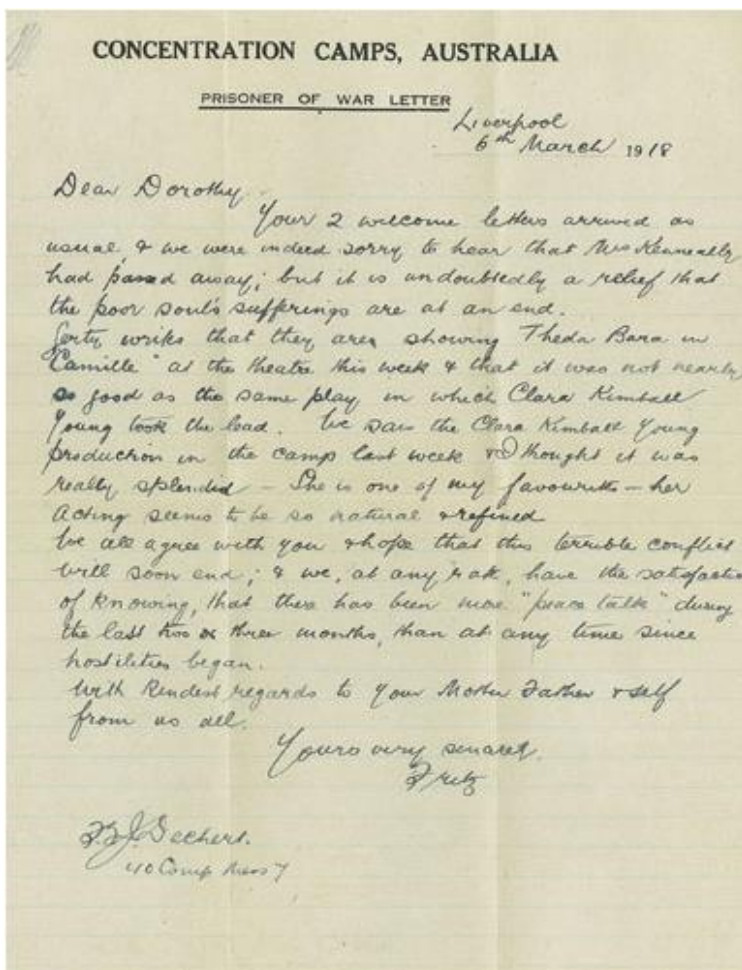 CONCENTRATION CAMPS, AUSTRALIA
PRISONER OF WAR LETTER
Liverpool
6th March 1918
Dear Dorothy
Your 2 welcome letters arrived as
usual, & we were indeed sorry to hear that Mrs Kenneally
had passed away; but it is undoubtedly a relief that
the poor soul's sufferings are at an end.
writes that they are showing Theda Bara in
Camille" at the theatre this week & that it was not nearly
so good as the same play in which Clara Kimball
Young took the lead. We saw the Clara Kimball Young
production in the camp last week & I thought it was
really splendid – She is one of my favourites – her
acting seems to be so natural & refined
We all agree with you & hope that this terrible conflict
will soon end; & we, at any rate, have the satisfaction
of knowing, that there has been more "peace talk" during
the last two or three months, than at any time since
hostilities began.
With kindest regards to your Mother Father & self
from us all.
Yours very
Fritz
Camp Mess 7